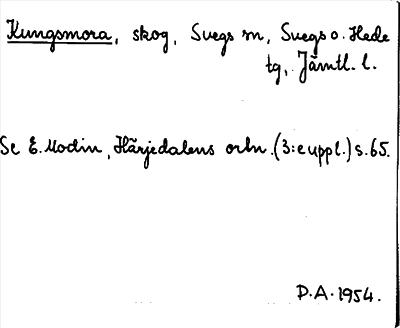 Kungsmora, skog, Svegs m, Svegs o. Hede
tg, Jämtl. l.
Se E. Modin, Härjedalens ortn. (3:e uppl.) s. 65.
D.A. 1954.